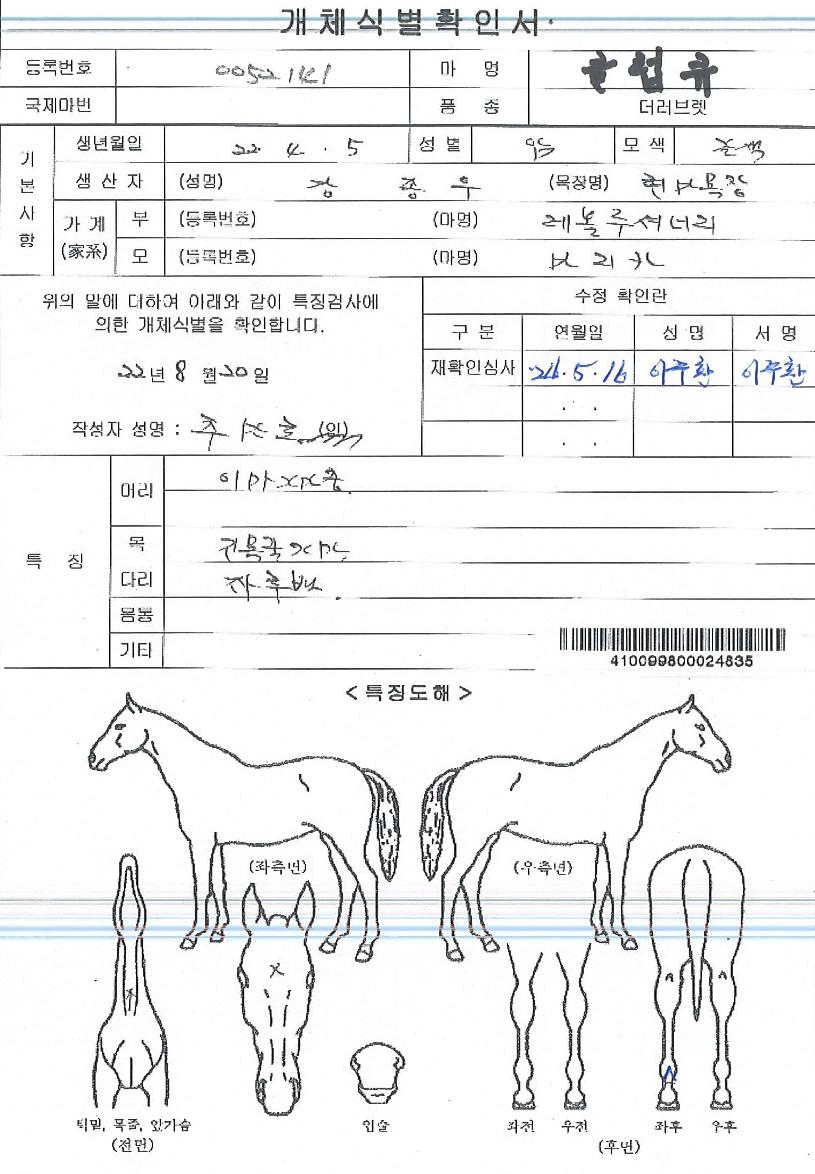 개체식별확인서
등록번호 0052141 마 명 글럽큐
국제마번 품 종 더러브렛
기본사항
생년월일 22. 4. 5 성별 모색
생 산 자 (성명) 강 종 우 (목장명)
가 계 (家系) 부 (등록번호) (마명) 레볼루셔너리
모 (등록번호) (마명)
위의 말에 대하여 아래와 같이 특징검사에
의한 개체식별을 확인합니다.
22년 8 월 20 일
작성자 성명 : (인)
수정 확인란
구 분 연월일 성 명 서 명
재확인심사 이주환 이주환
. .
. .
특 징
머리
목
다리 좌후백.
몸통
기타
410099800024835
< 특징도해 >
(좌측면) (우측면)
턱밑, 목줄, 앞가슴
(전면)
입술
좌전 우전 좌후 우후
(후면)